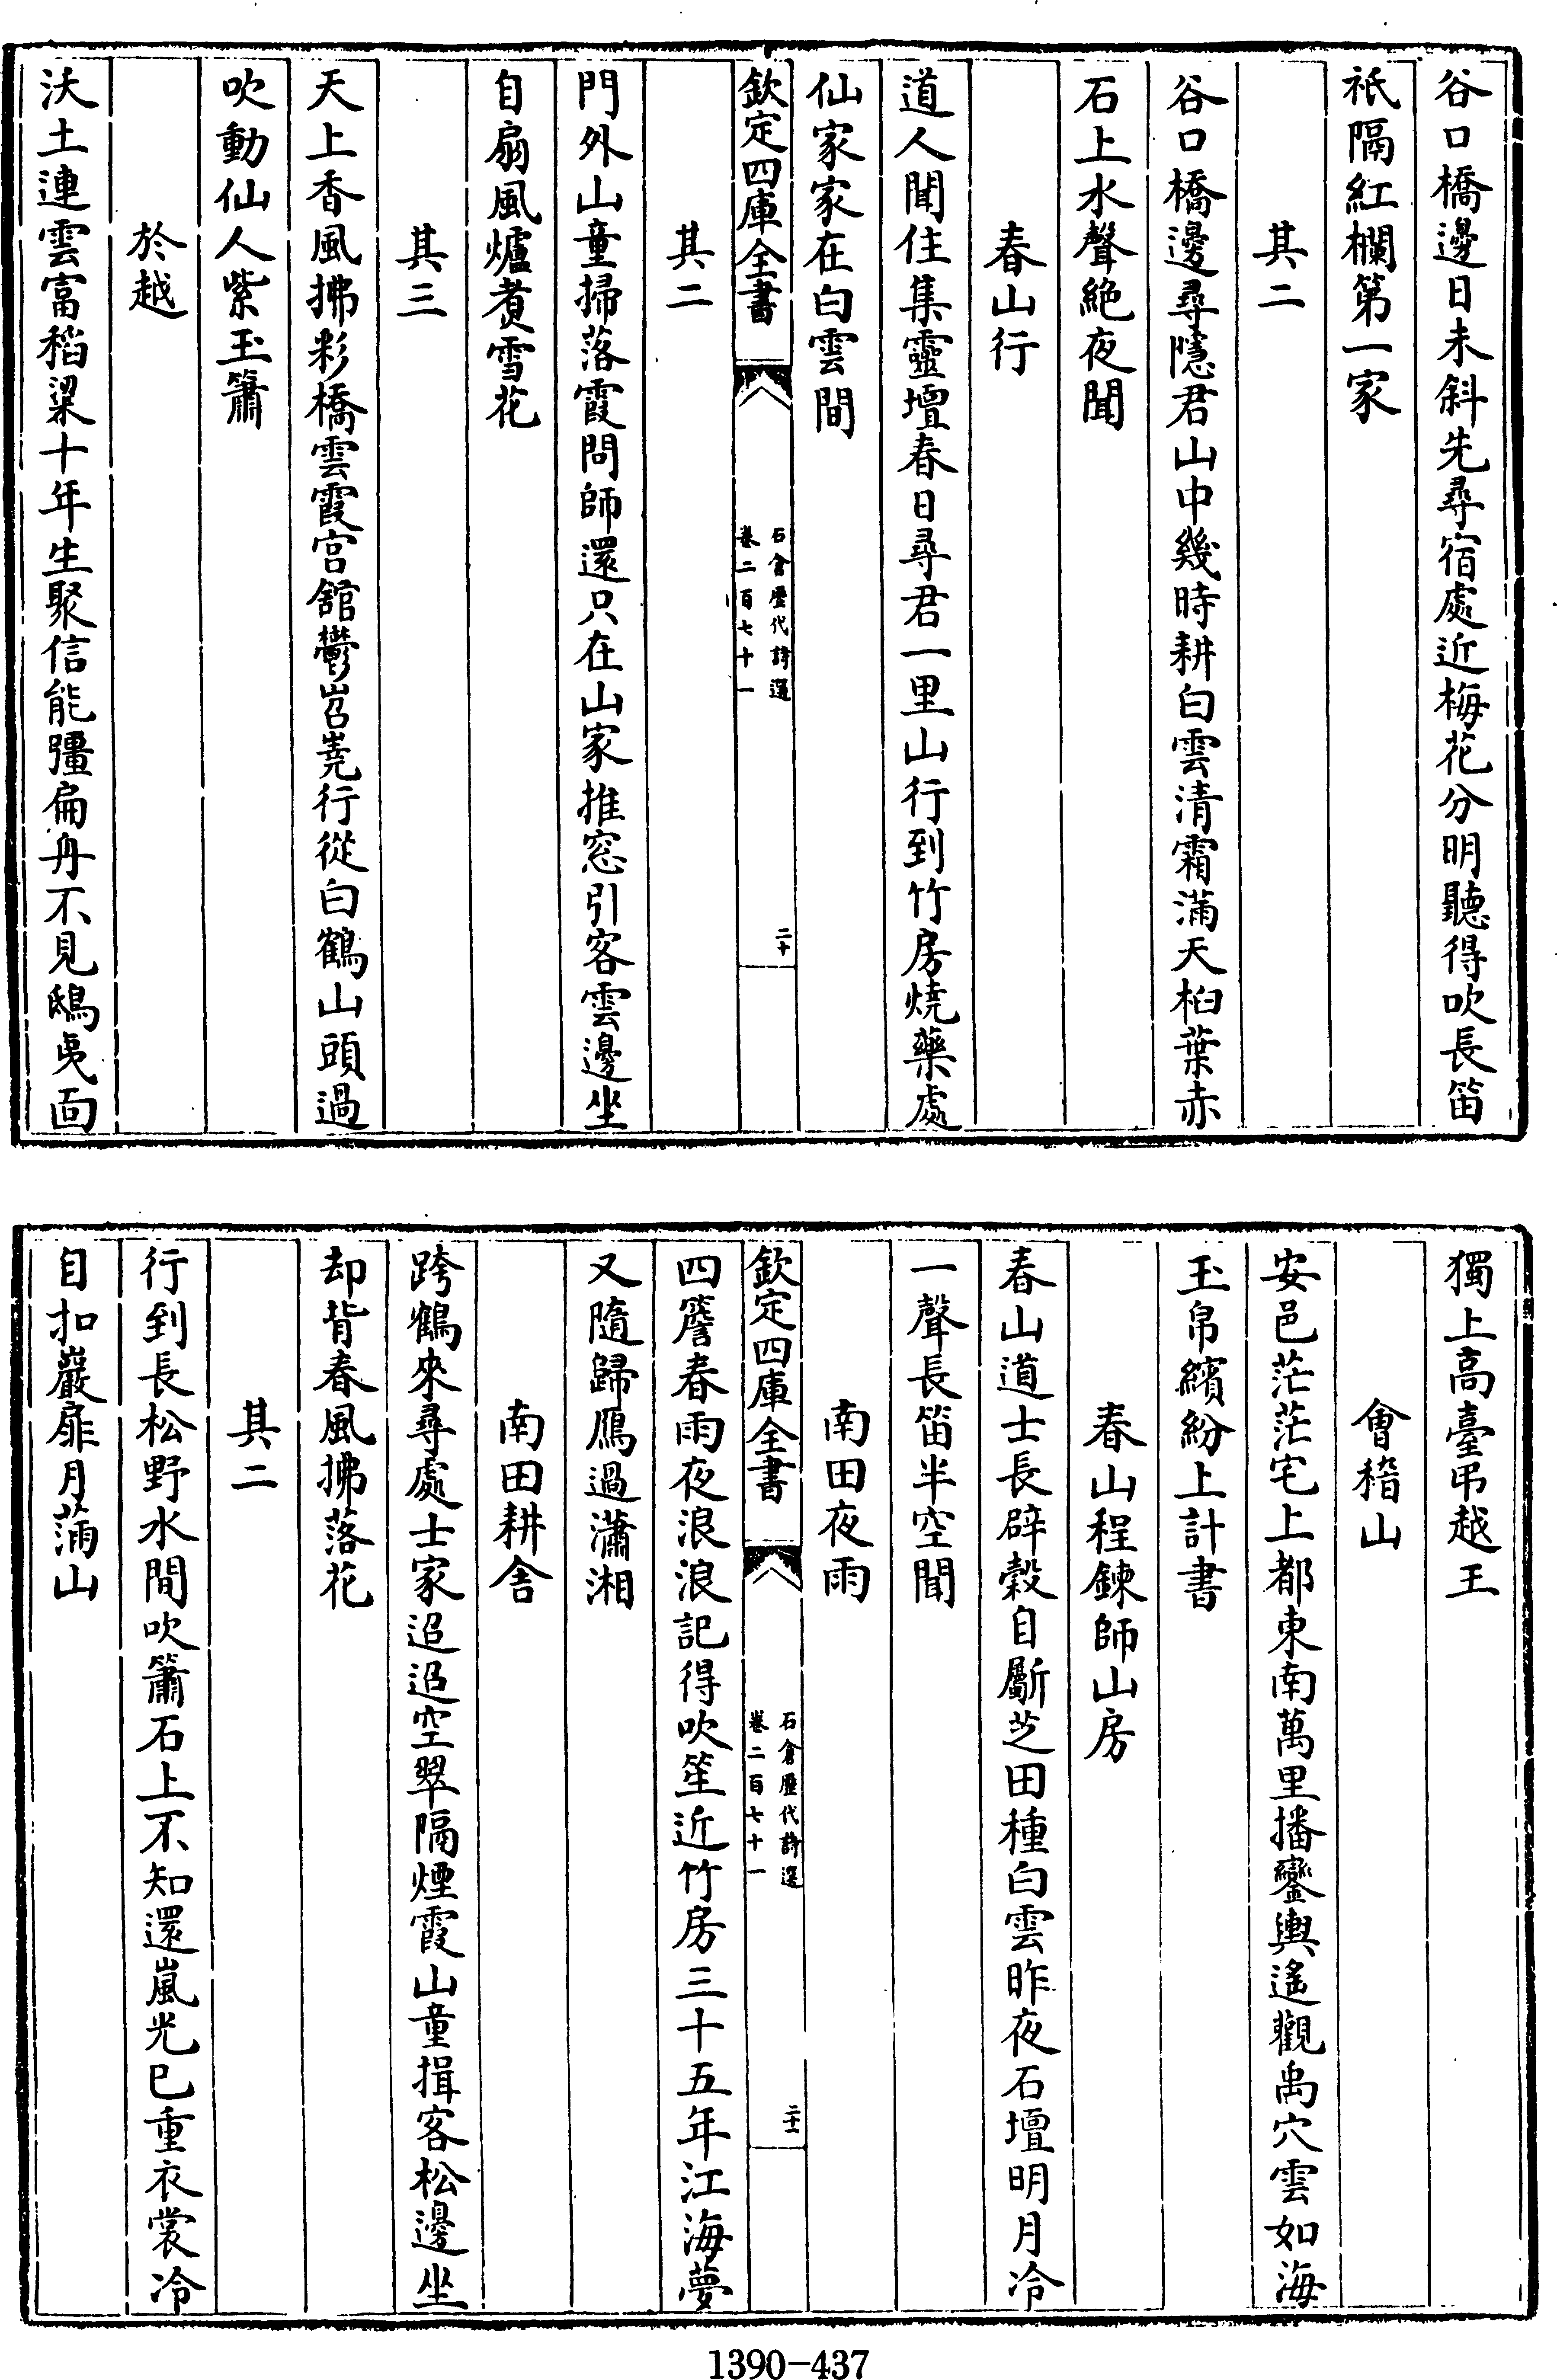 谷口橋邊日未斜先尋宿處近梅花分明聽得吹長笛
祇隔紅欄第一家
其二
谷口橋邊尋隱君山中幾時耕白雲清霜滿天桕葉赤
石上水聲絶夜聞
春山行
道人聞住集靈壇春日尋君一里山行到竹房燒藥處
仙家家在白雲間
欽定四庫全書
石倉歷代詩選
卷二百七十一
二十
其二
門外山童掃落霞問師還只在山家推窓引客雲邊坐
自扇風爐煑雪花
其三
天上香風拂彩橋雲霞宫舘鬱岧嶤行從白鶴山頭過
吹動仙人紫玉簫
於越
沃土連雲富稻粱十年生聚信能彊扁舟不見鴟夷面
獨上髙臺弔越王
會稽山
安邑茫茫宅上都東南萬里播鑾輿遙觀禹穴雲如海
玉帛繽紛上計書
春山程鍊師山房
春山道士長辟穀自斸芝田種白雲昨夜石壇明月冷
一聲長笛半空聞
南田夜雨
欽定四庫全書
石倉歷代詩選
卷二百七十一
二十一
四簷春雨夜浪浪記得吹笙近竹房三十五年江海夢
又隨歸鴈過瀟湘
南田耕舍
跨鶴來尋處士家迢迢空翠隔煙霞山童揖客松邊坐
却背春風拂落花
其二
行到長松野水間吹簫石上不知還嵐光已重衣裳冷
自扣巖扉月滿山
1390-437